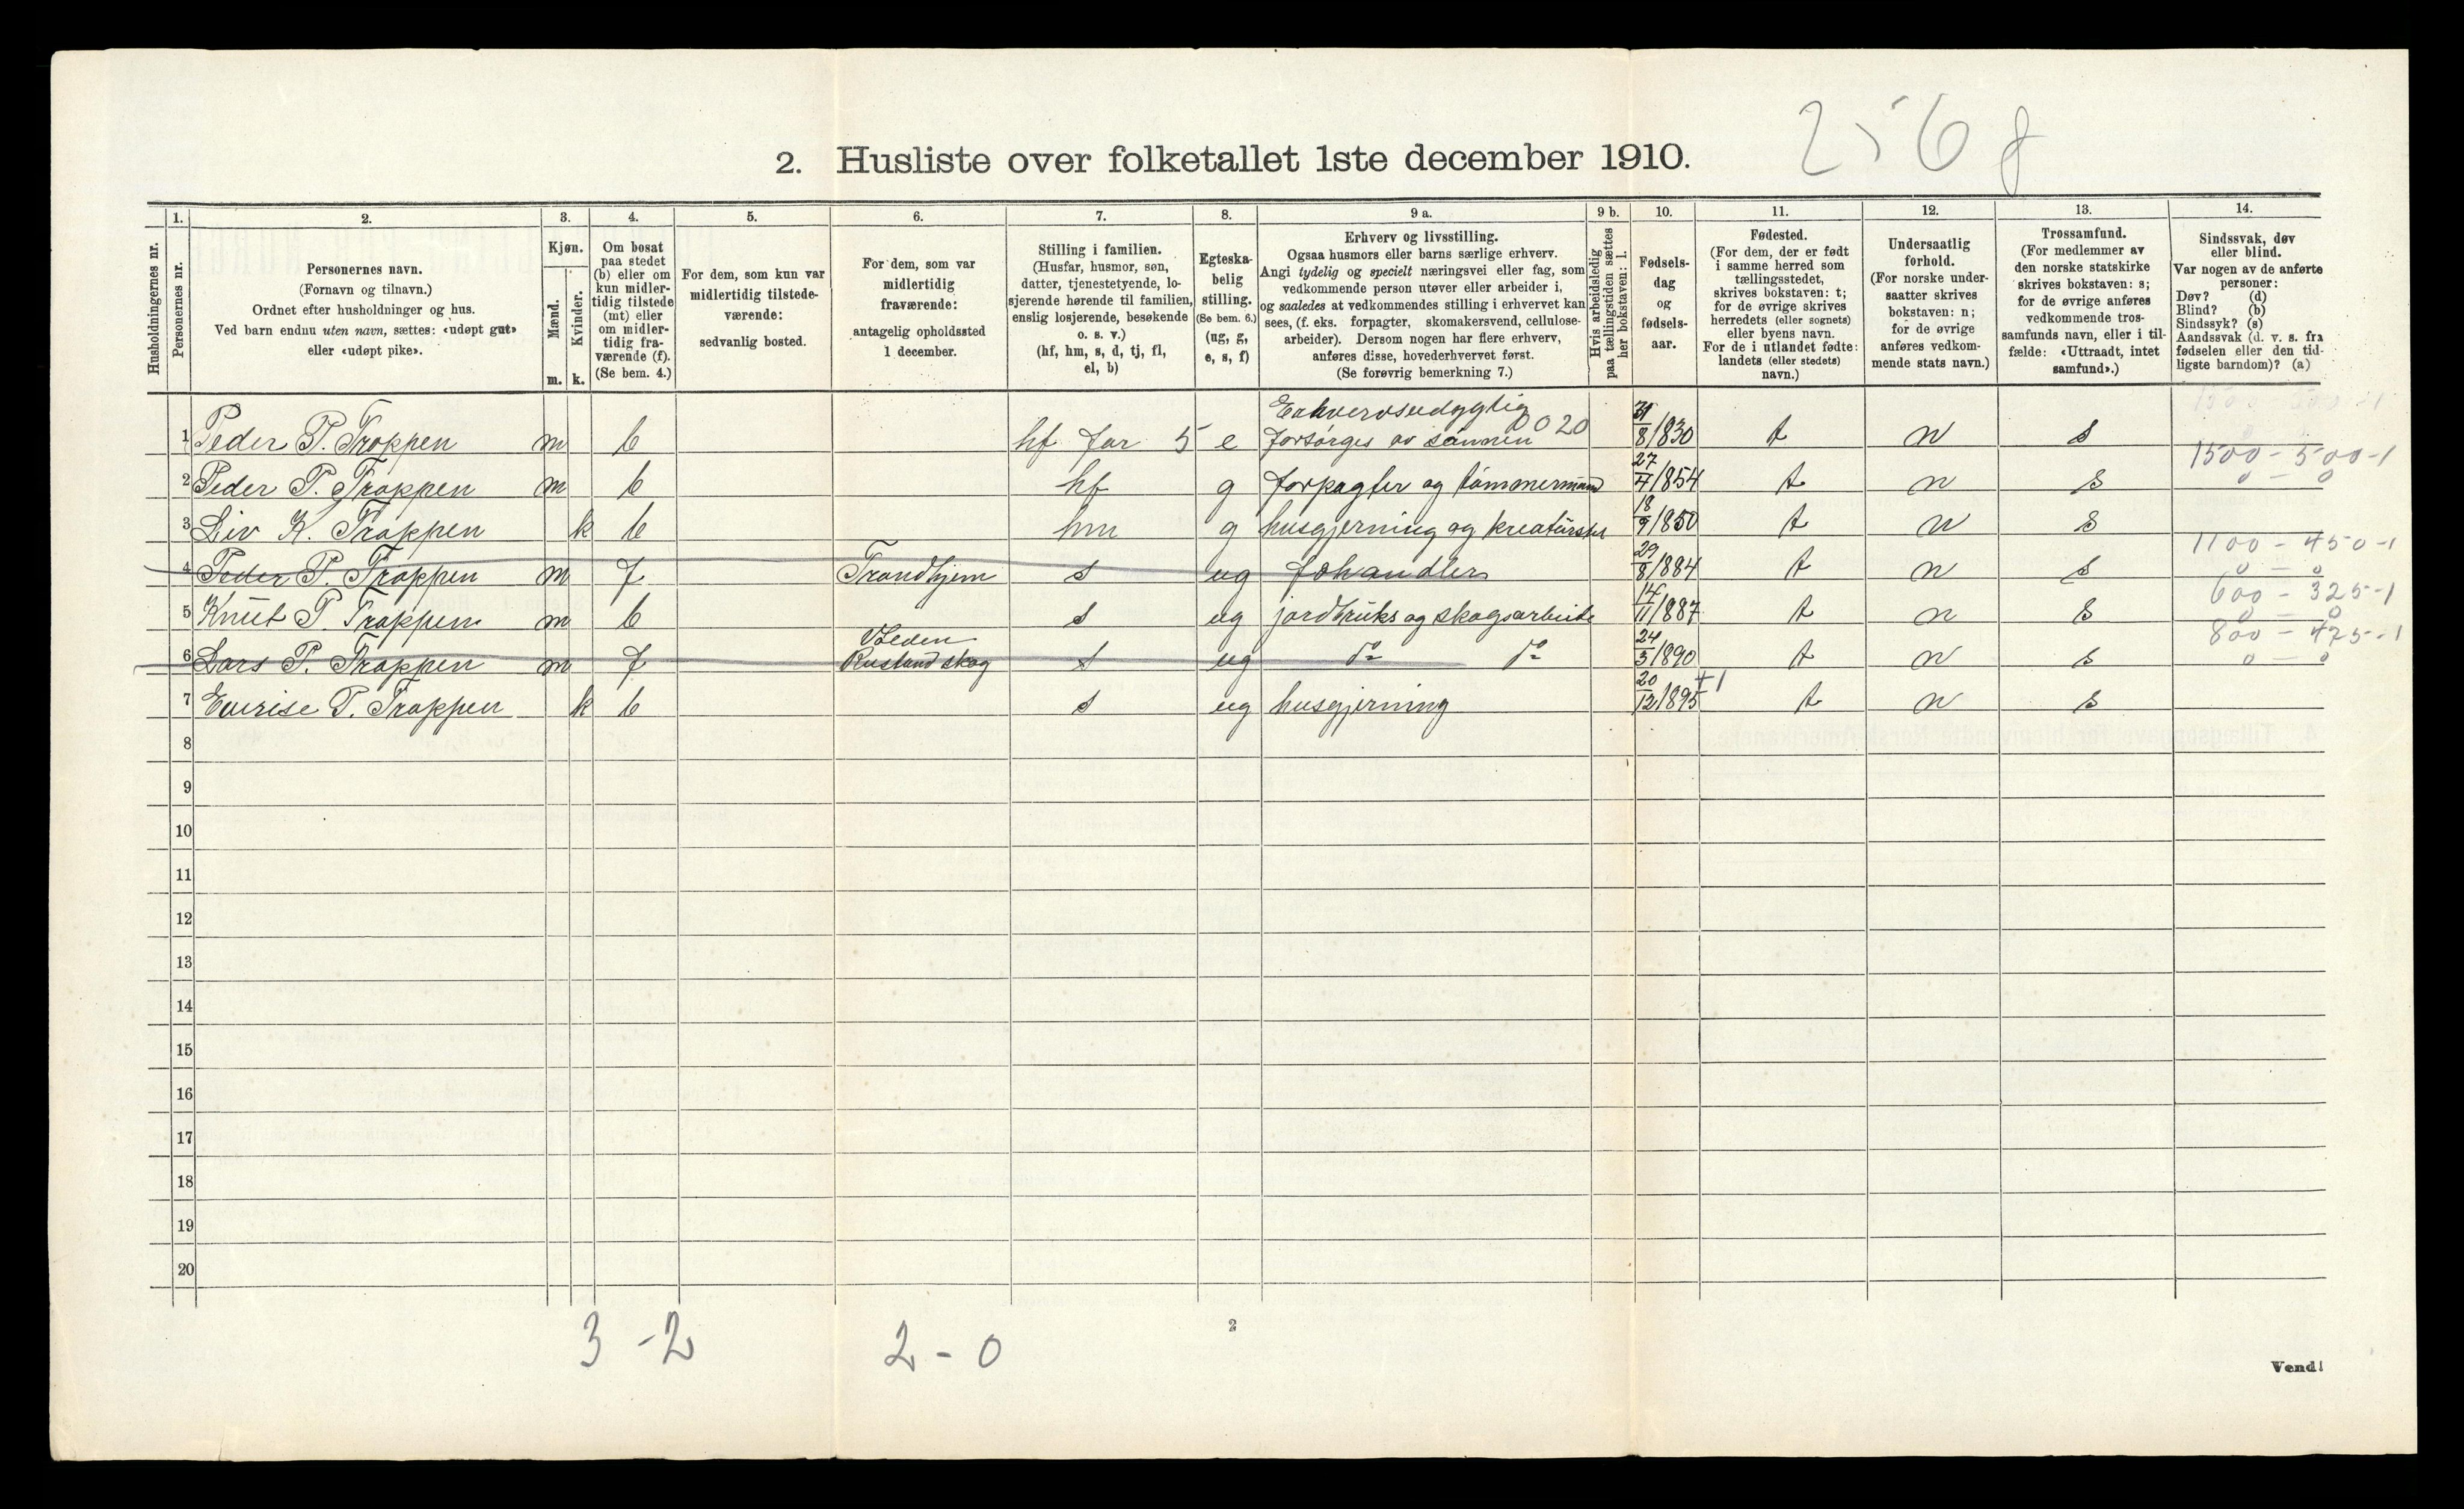 256 f
2. Husliste over folketallet 1ste december 1910.
1. 2. 3. 4. 5. 6. 7. 8. 9 a. 9 b. 10. 11. 12. 13. 14.
Husholdningernes nr.
Personernes nr.
Personernes navn.
(Fornavn og tilnavn.)
Ordnet efter husholdninger og hus.
Ved barn endnu uten navn, sættes: «udøpt gut»
eller «udøpt pike».
Kjøn.
Mænd.
Kvinder.
m. k.
Om bosat
paa stedet
(b) eller om
kun midler-
tidig tilstede
(mt) eller
om midler-
tidig fra-
værende (f).
(Se bem. 4.)
For dem, som kun var
midlertidig tilstede-
værende:
sedvanlig bosted.
For dem, som var
midlertidig
fraværende:
antagelig opholdssted
1 december.
Stilling i familien.
(Husfar, husmor, søn,
datter, tjenestetyende, lo-
sjerende hørende til familien,
enslig losjerende, besøkende
o. s. v.)
(hf, hm, s, d, tj, fl,
el, b)
Egteska-
belig
stilling.
(Se bem. 6.)
(ug, g,
e, s, f)
Erhverv og livsstilling.
Ogsaa husmors eller barns særlige erhverv.
Angi tydelig og specielt næringsvei eller fag, som
vedkommende person utøver eller arbeider i,
og saaledes at vedkommendes stilling i erhvervet kan
sees, (f. eks. forpagter, skomakersvend, cellulose-
arbeider). Dersom nogen har flere erhverv,
anføres disse, hovederhvervet først.
(Se forøvrig bemerkning 7.)
Hvis arbeidsledig
paa tællingstiden sættes
her bokstaven: l.
Fødsels-
dag
og
fødsels-
aar.
Fødested.
(For dem, der er født
i samme herred som
tællingsstedet,
skrives bokstaven: t;
for de øvrige skrives
herredets (eller sognets)
eller byens navn.
For de i utlandet fødte:
landets (eller stedets)
navn.)
Undersaatlig
forhold.
(For norske under-
saatter skrives
bokstaven: n;
for de øvrige
anføres vedkom-
mende stats navn.)
Trossamfund.
(For medlemmer av
den norske statskirke
skrives bokstaven: s;
for de øvrige anføres
vedkommende tros-
samfunds navn, eller i til-
fælde: «Uttraadt, intet
samfund».)
Sindssvak, døv
eller blind.
Var nogen av de anførte
personer:
Døv? (d)
Blind? (b)
Sindssyk? (s)
Aandssvak (d. v. s. fra
fødselen eller den tid-
ligste barndom)? (a)
1 Peder P. Troppen m b hf far 5 e forsørges av sønnen 0020 31/8/830 t n s
1500 - 500 - 1
2 Peder P. Troppen m b hf g forpagter og tømmermand 27/4/854 t n s 0 — 0
3 Liv K. Troppen k b hm g husgjerning og kreaturstel 18/9/850 t n s
1100 - 450 - 1
4 Peder P. Troppen m f Trondhjem s ug 29/8/884 t n s 0 — 0
600 - 325 - 1
5 Knut P. Troppen m b s ug jordbruks og skogsarbeide 14/11/887 t n s 0 — 0
800 - 475 - 1
6 Lars P. Troppen m f Rustand skog s ug do do 24/3/890 t n s 0 — 0
7 P. Troppen k b s ug husgjerning 20/12/895 +1 t n s
8
9
10
11
12
13
14
15
16
17
18
19
20
3 - 2 2 - 0
2
Vend!